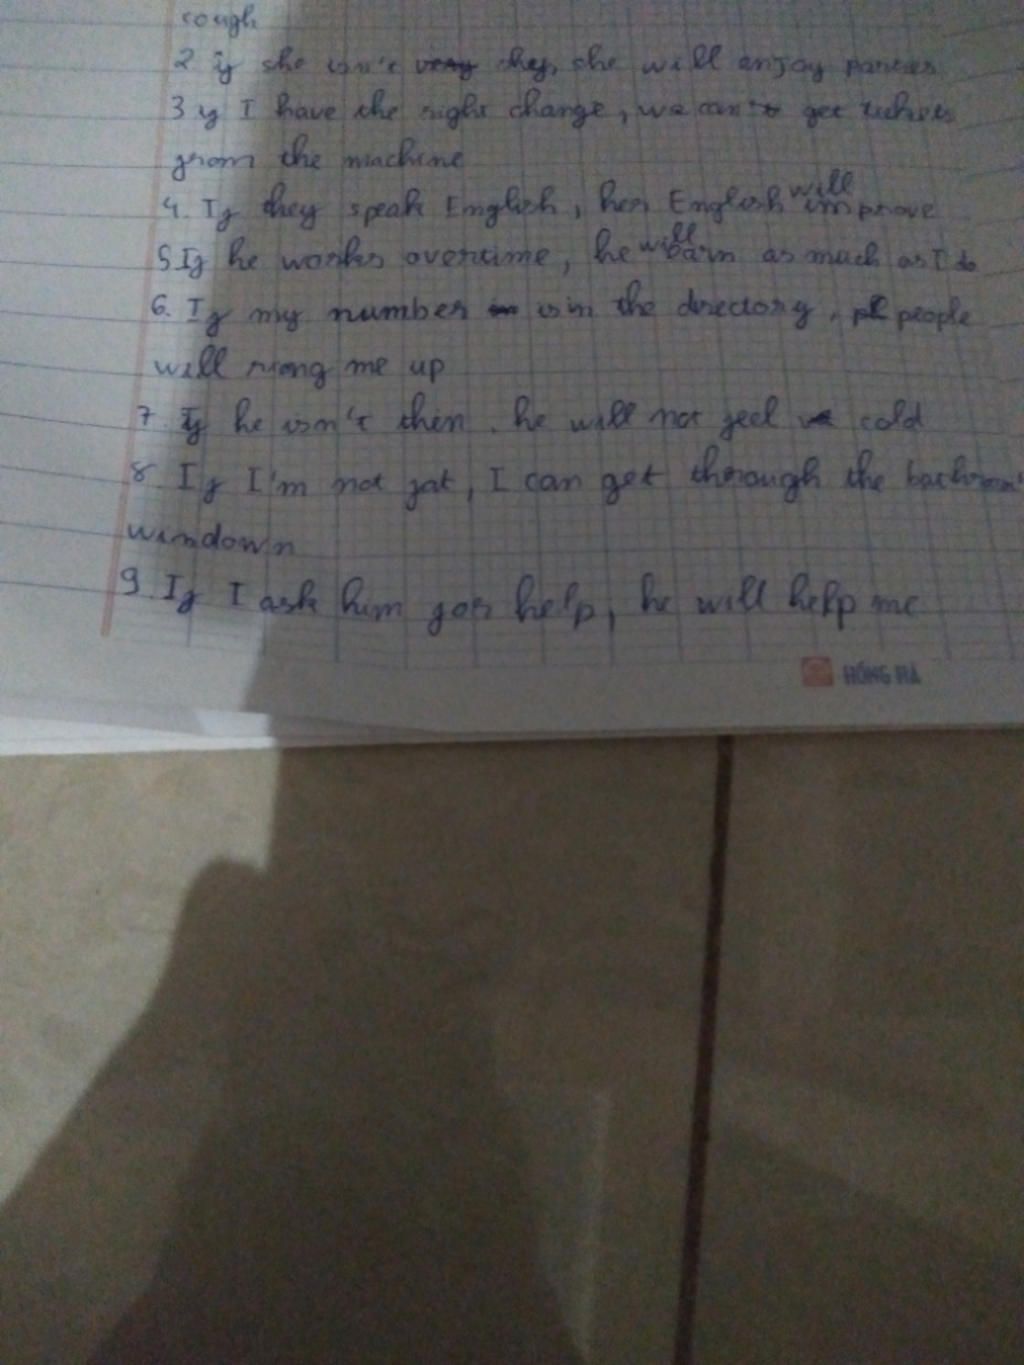 rough
2 if she isn't shy, she will enjoy parties
3 if I have the right change, we can get tickets
from the machine
4. If they speak English, her English will improve
5 If he works overtime, he will earn as much as I do
6. If my number is in the directory, people
will rang me up
7. If he isn't thin, he will not feel cold
8. If I'm not fat, I can get through the bathroom
windown
9. If I ask him for help, he will help me
HỒNG HÀ